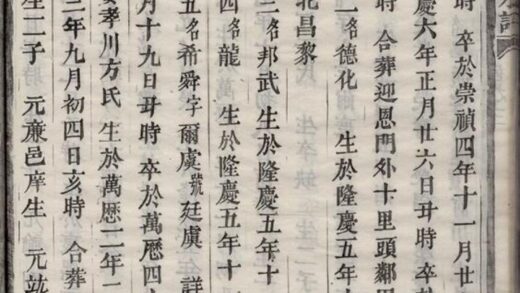 時 卒於崇禎四年十一月廿
慶六年正月廿六日丑時 卒於
時 合葬迎恩門外十里頭鄰
二名德化 生於隆慶五年
北昌黎
三名邦武 生於隆慶五年十
四名龍 生於隆慶五年十
五名希舜字爾虞號廷虞 詳
月十九日丑時 卒於萬歷四
孝川方氏 生於萬歷二年一
三年九月初四日亥時 合葬
生二子 元亷邑庠生 元